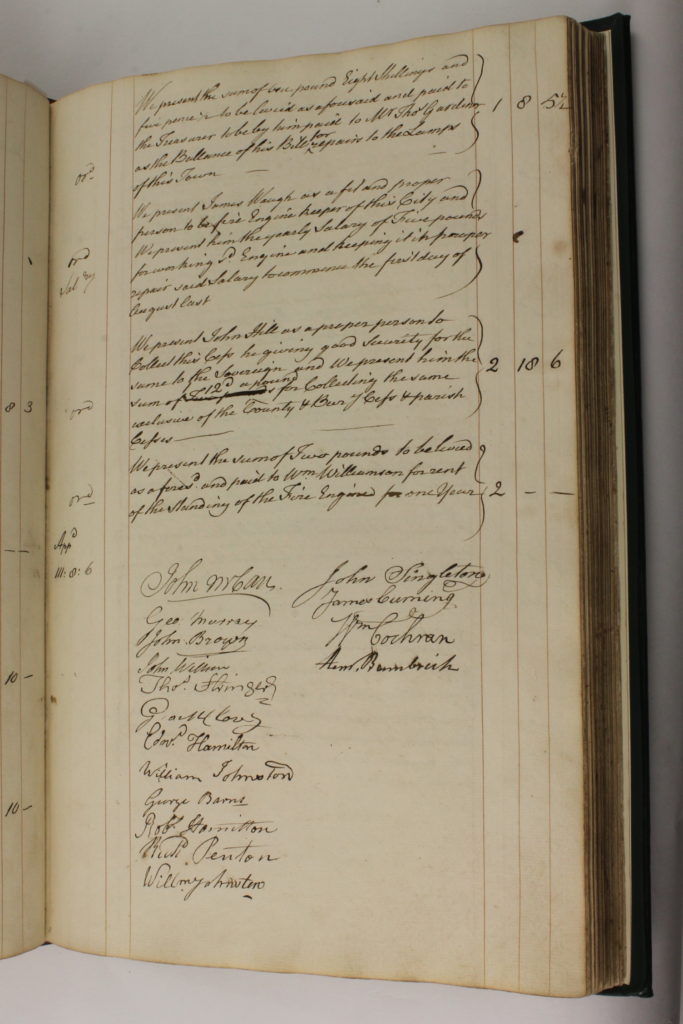 We present the sum of one pound Eight Shillings and
five pence ½ to be levied as aforesaid and paid to
the Treasurer to be by him paid to Mr Thos Gardner
as the Ballance of his Bill for repairs to the Lamps
of this Town —
1 8 5½
ord
We present James Waugh as a fit and proper
person to be fire Engine keeper of this City and
We present him the yearly Salary of Five pounds
for working sd. Engine and keeping it in proper
repair said Salary to commence the first day of
August last
ord
We present John Hill as a proper person to
Collect this Cess he giving good security for the
same to the Sovereign and We present him the
sum of 12d a pound for Collecting the same
exclusive of the County & Bury Cess & parish
Cesses —
2 18 6
ord
We present the sum of Two pounds to be levied
as aforesd. and paid to Wm Williamson for rent
of the standing of the Fire Engine for one Year
2 — —
ord
Appd
111: 8: 6
8 3
10 —
10 —
John McCan
John Singleton
James Cuming
Geo. Murray
Wm Cochran
John Brown
John Willson
Thos. Stringer
Edwd. Hamilton
William Johnston
George Barns
Robt. Hamilton
Richd Penton
Willm Johnston